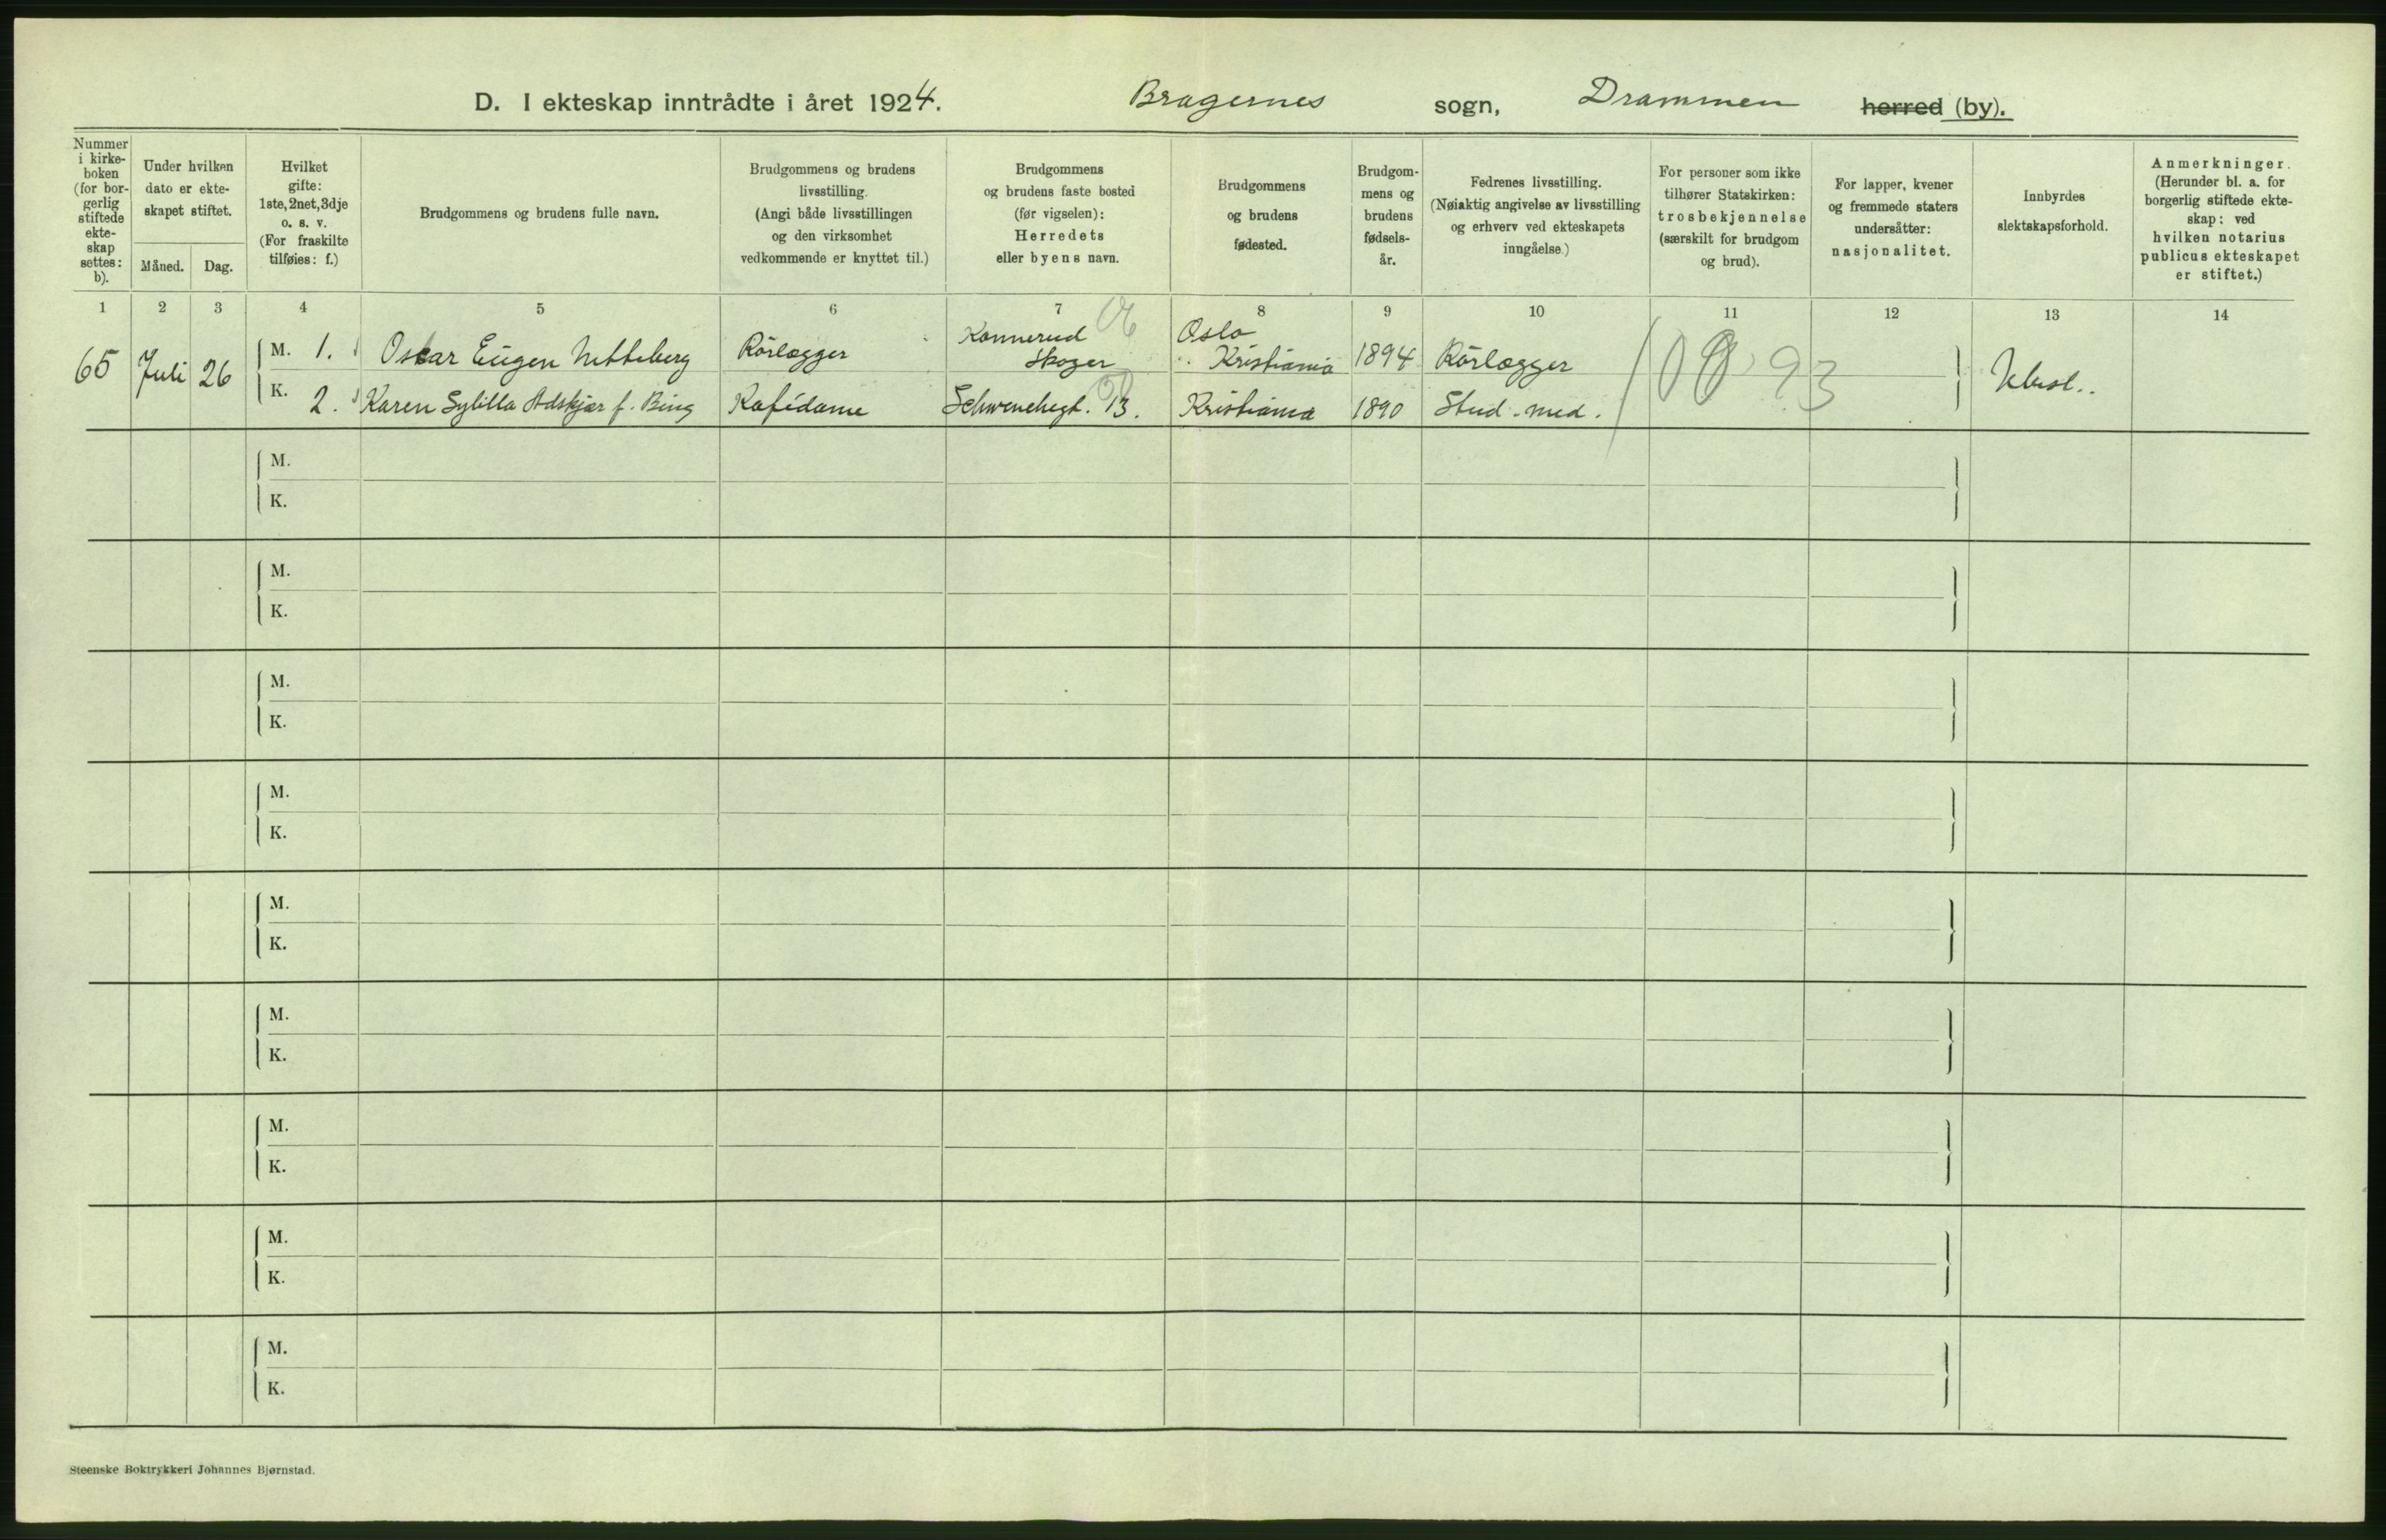 D. I ekteskap inntrådte i året 1924. Bragernes sogn, Drammen herred (by).
Nummer i kirke-boken (for bor-gerlig stiftede ekte-skap settes: b).
Under hvilken dato er ekte-skapet stiftet.
Måned. Dag.
Hvilket gifte: 1ste, 2net, 3dje o. s. v. (For fraskilte tilføies: f.)
Brudgommens og brudens fulle navn.
Brudgommens og brudens livsstilling. (Angi både livsstillingen og den virksomhet vedkommende er knyttet til.)
Brudgommens og brudens faste bosted (før vigselen): Herredets eller byens navn.
Brudgommens og brudens fødested.
Brudgom-mens og brudens fødsels-år.
Fedrenes livsstilling. (Nøiaktig angivelse av livsstilling og erhverv ved ekteskapets inngåelse.)
For personer som ikke tilhører Statskirken: trosbekjennelse (særskilt for brudgom og brud).
For lapper, kvener og fremmede staters undersåtter: nasjonalitet.
Innbyrdes slektskapsforhold.
Anmerkninger. (Herunder bl. a. for borgerlig stiftede ekte-skap: ved hvilken notarius publicus ekteskapet er stiftet.)
1 2 3 4 5 6 7 8 9 10 11 12 13 14
65 Juli 26
M. 1. Oskar Eugen Nitteberg Rörlægger Konnerud Skoger Oslo Kristiania 1894 Rörlægger
K. 2. Karen Sybilla Adskjær f. Bing Kafédame Schwenchegt. 13. Kristiania 1890 Stud. med.
93
Ubesl..
M.
K.
M.
K.
M.
K.
M.
K.
M.
K.
M.
K.
M.
K.
M.
K.
M.
K.
Steenske Boktrykkeri Johannes Bjørnstad.